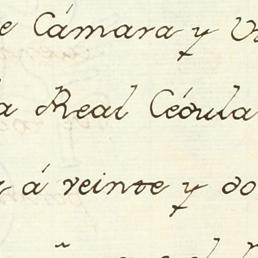 e Cámara y
a Real Cédula
á veinte y do